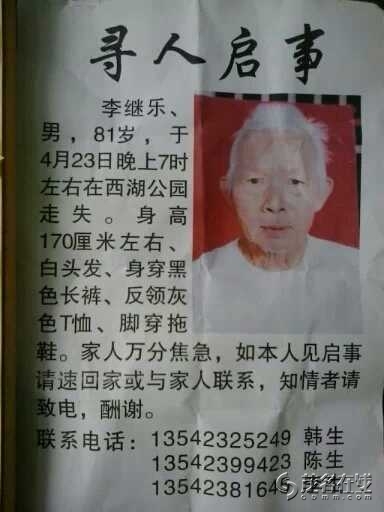 寻人启事
李继乐、
男，81岁，于
4月23日晚上7时
左右在西湖公园
走失。身高
170厘米左右、
白头发、身穿黑
色长裤、反领灰
色T恤、脚穿拖
鞋。家人万分焦急，如本人见启事
请速回家或与家人联系，知情者请
致电，酬谢。
联系电话：13542325249 韩生
13542399423 陈生
13542381645
茂名在线